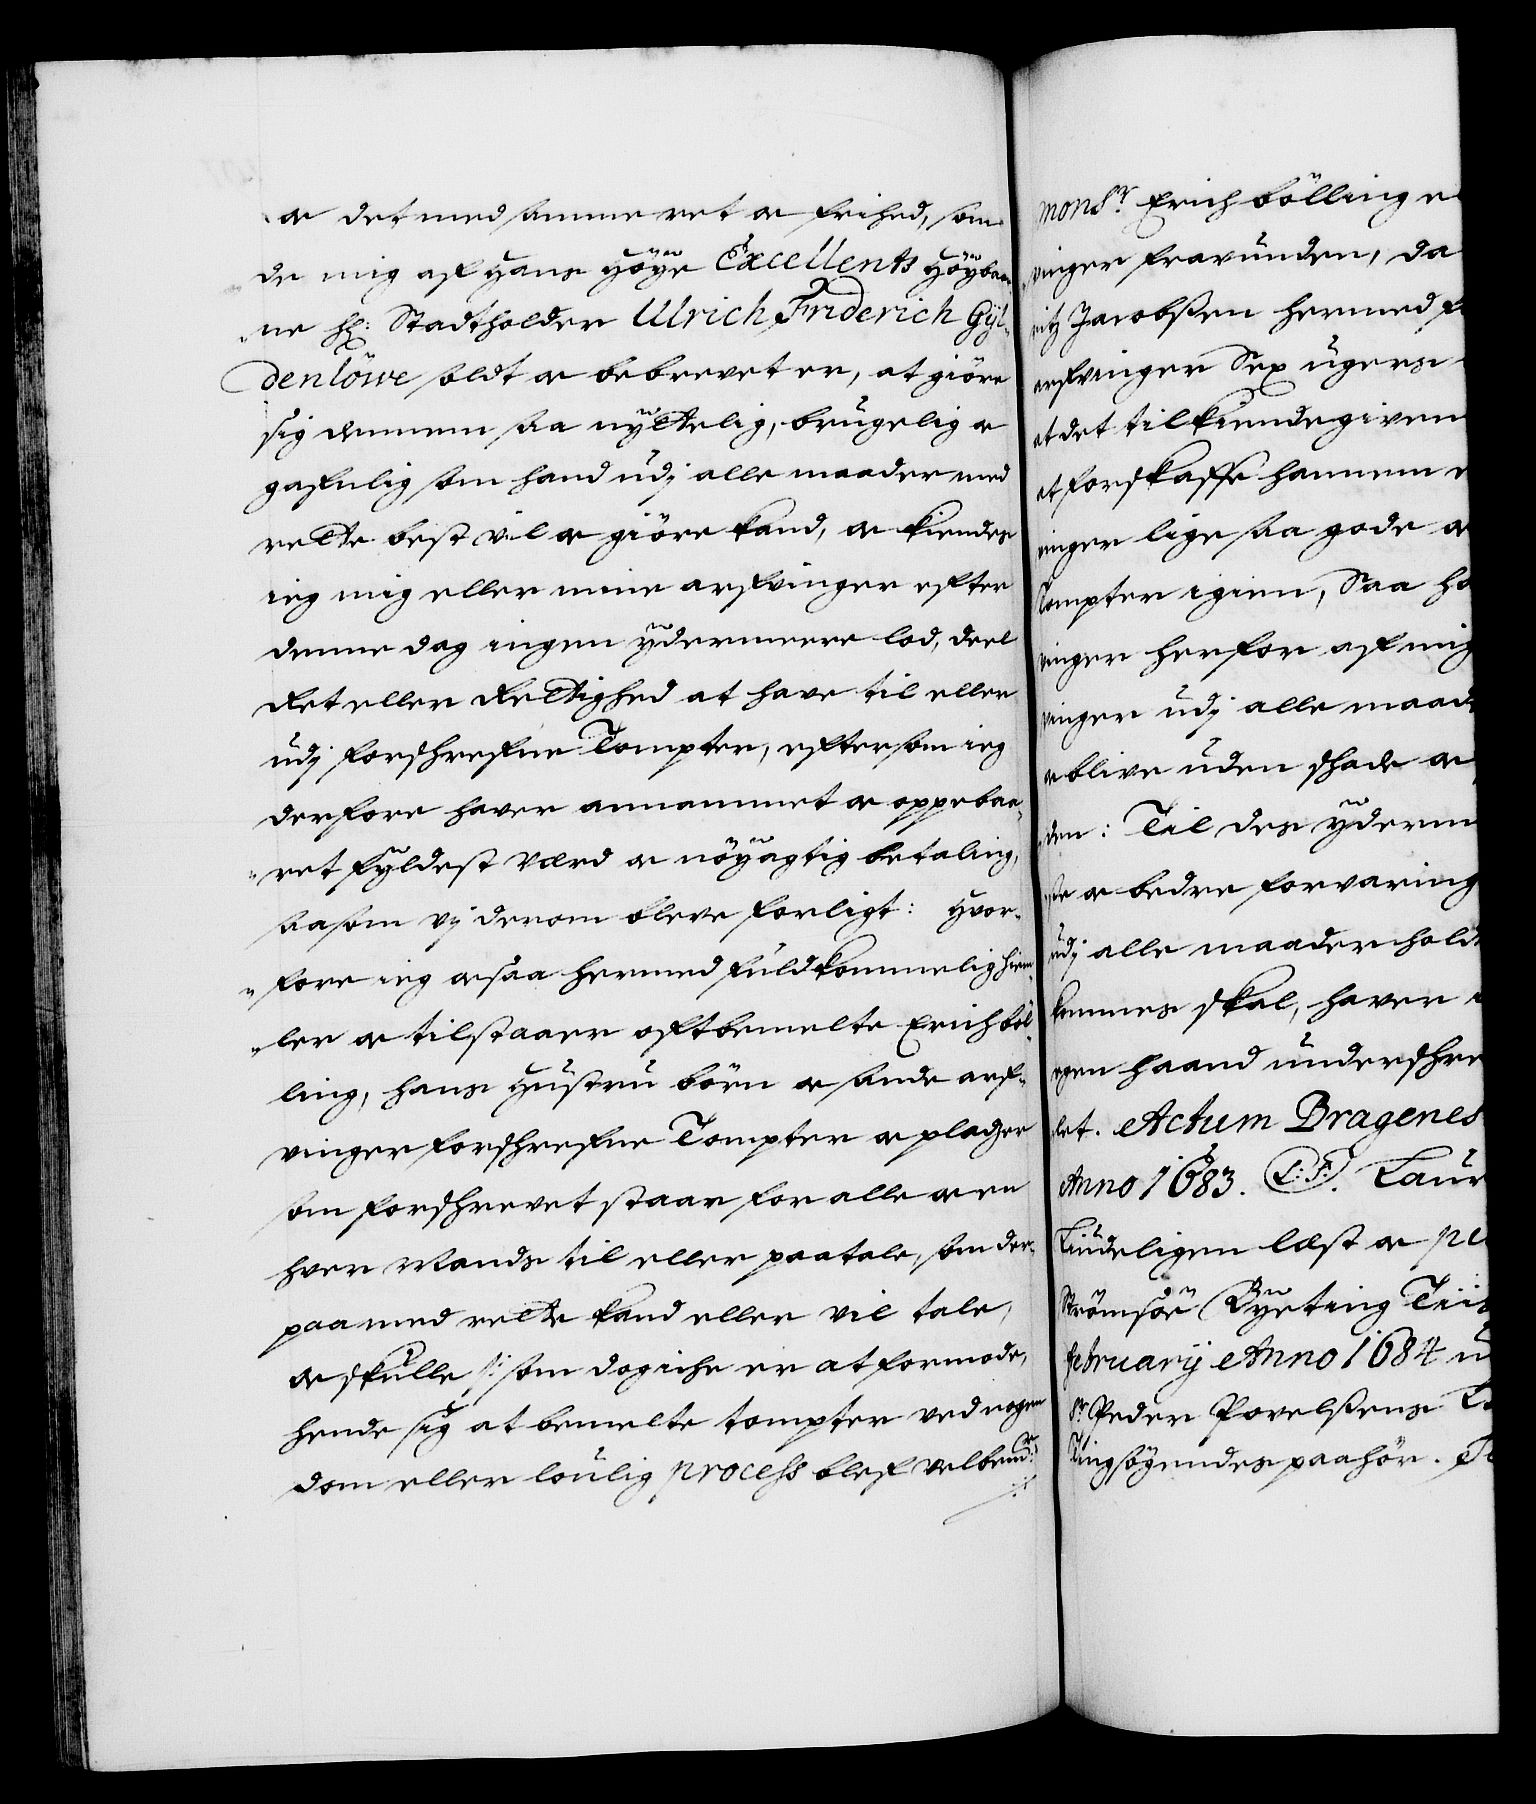 oc det med samme ret oc frihed, som
de mig af Hans Höye Excellents Höybaar¬
ne H: Stadtholder Ulrich Friderich Gyl¬
denlöwe soldt oc bebrevet er, at giöre
sig dennem saa nyttelig, brugelig oc
gafnlig som hand udj alle maader med
rette best vil oc giöre kand, oc kiendes
ieg mig eller mine arfvinger efter
denne dag ingen ydermeere lod, deel
Ret eller Rettighed at have til eller
udj forschrefne Tompter, eftersom ieg
derfore haver annammet oc oppebaa¬
ret fyldest værd oc nöyagtig betaling,
saasom vj derom bleve forligt: Hvor¬
fore ieg ocsaa hermed fuldkommelig hiem¬
ler oc tilstaaer oftbemelte Erich böl¬
ling, hans Hustru börn oc sande arf¬
vinger forschrefne Tompter oc pladtzer
som forschrevet staar for alle oc en
hver Mands til eller paatale, som der¬
paa med rette kand eller vil tale,
oc skulle /: som dog iche er at formode,
hende sig at bemelte tompter ved nogen
dom eller loulig process blef velbemte
:/
Monsr Erich bölling e
vinger fravunden, da
ritz Jacobsen hermed f
arfvinger Sex ugers
at det tilkiendegiven
at forskaffe hannem e
vinger lige saa gode oc
Tompter igien, Saa ha
vinger herfor af mig
vinger udj alle maad
oc blive uden schade oc
den: Til des yderm
ste oc bedre forvaring
udj alle maader hold
kommes skal, haver i
egen haand underschre
let. Actum Bragenes
Anno 1683. L:S: Laur
Liudeligen læst oc pu
Strömsöe Byeting Tiis
february Anno 1684 u
Sr Peder Povelssens L
Tingsögendes paahör. T